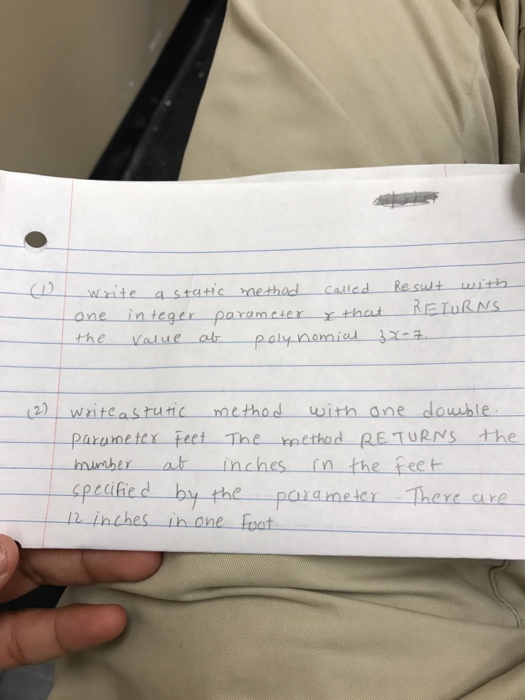 (1) write a static method called Result with
one integer parameter x that RETURNS
the value ab polynomial 3x-7.
(2) write a static method with one double.
parameter feet The method RETURNS the
number ab inches in the feet
specified by the parameter. There are
12 inches in one foot